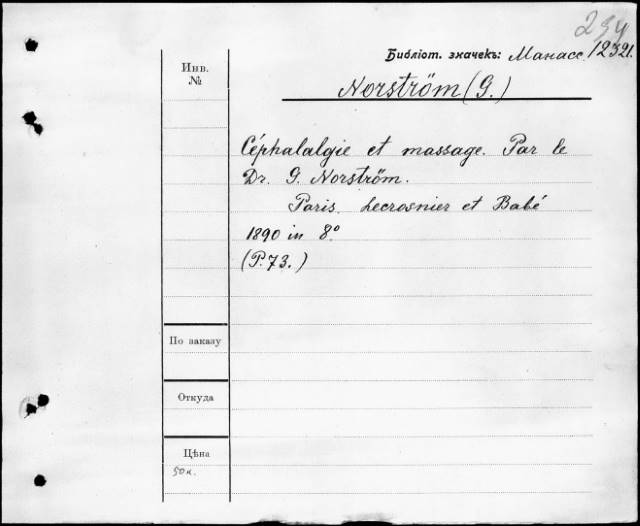 234
Библіот. значекъ: Манасс. 12321.
Инв.
№
Norström (G.)
Céphalalgie et massage. Par le
Dr. G. Norström.
Paris. Lecrosnier et Babé
1890 in 8º
(P. 73.)
По заказу
Откуда
Цѣна
50к.